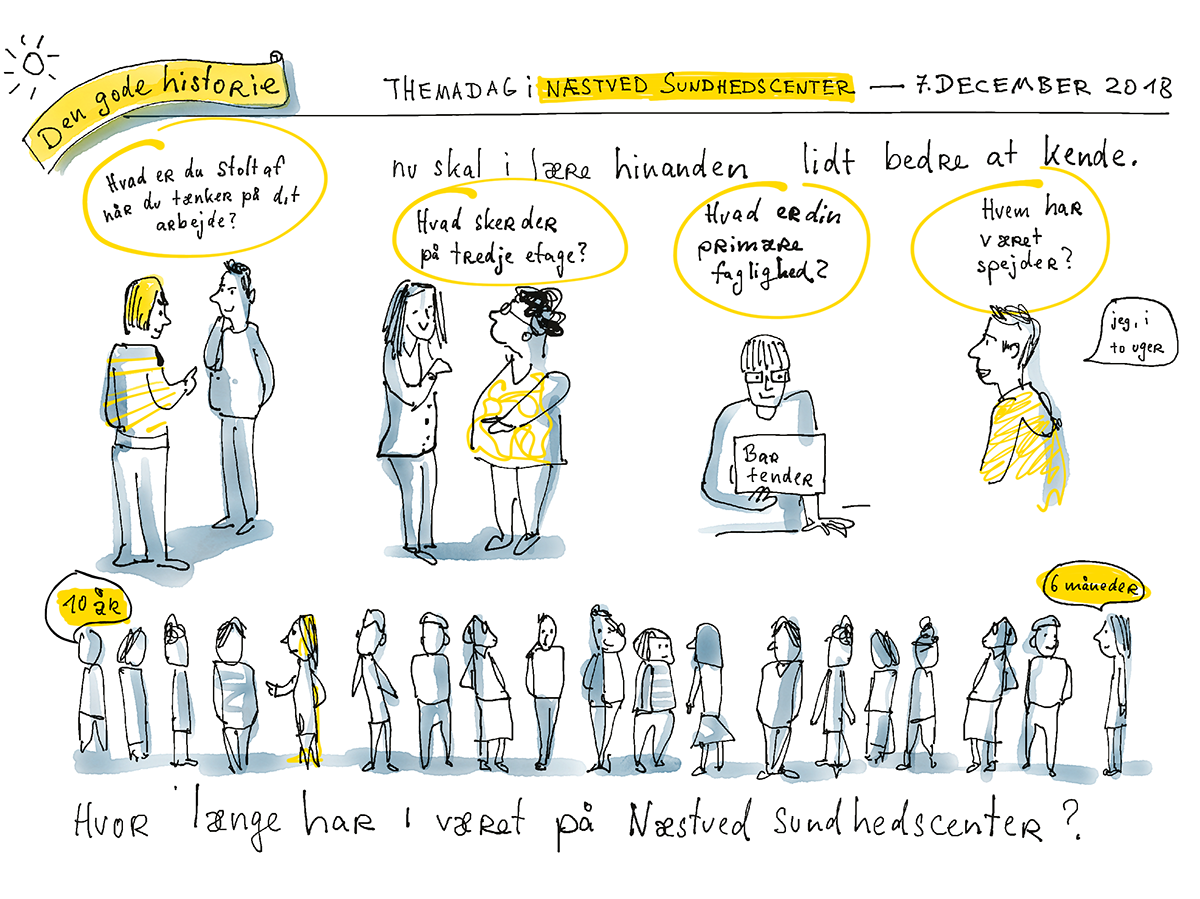 Den gode historie
THEMADAG i NÆSTVED SUNDHEDSCENTER — 7. DECEMBER 2018
nu skal i lære hinanden lidt bedre at kende.
Hvad er du stolt af
når du tænker på dit
arbejde?
Hvad sker der
på tredje etage?
Hvad er din
primære
faglighed?
Hvem har
været
spejder?
jeg, i
to uger
Bar
tender
10 år
6 måneder
Hvor længe har i været på Næstved sundhedscenter?